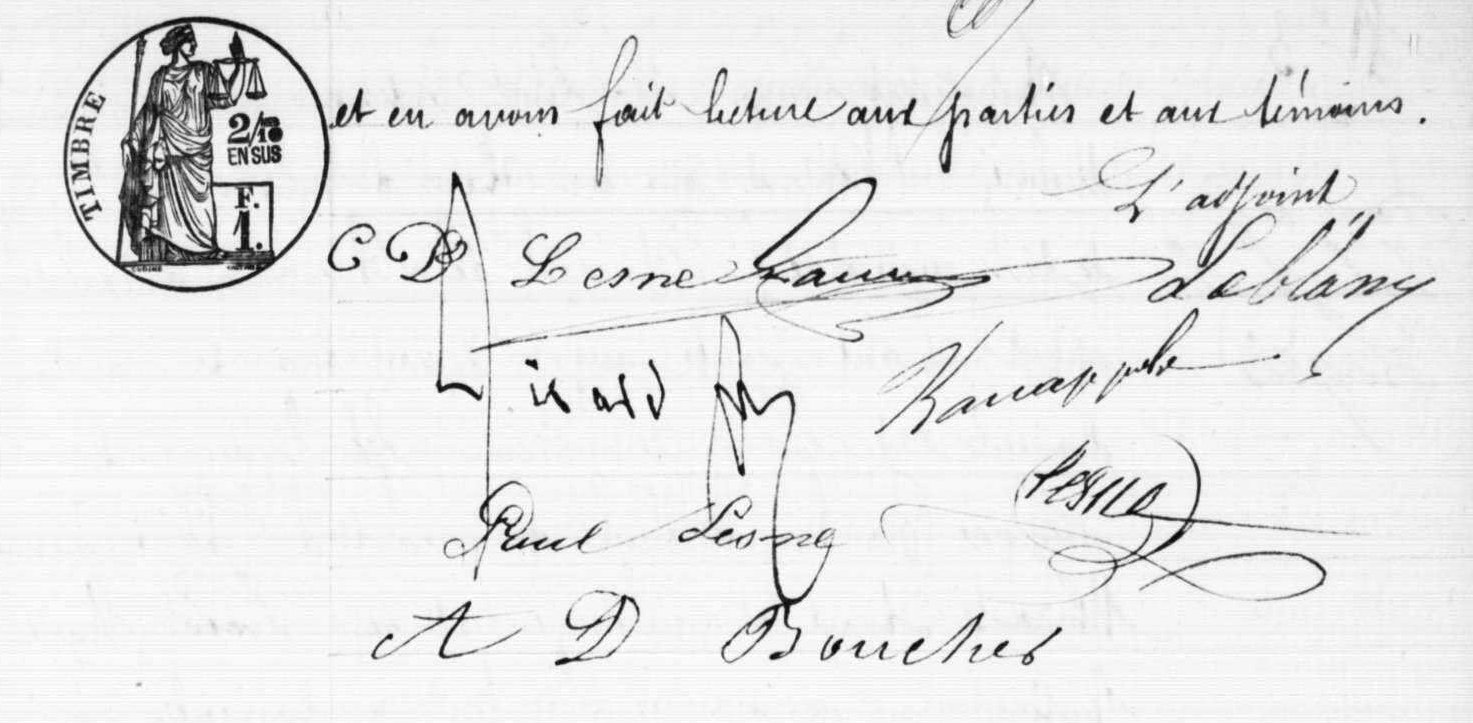 TIMBRE
2/10
EN SUS
F.
1.
et en avons fait lecture aux parties et aux témoins.
L'adjoint
C D Lesne Leblanc
Kanappe
Lesne
Paul Lesne
A D Boucher